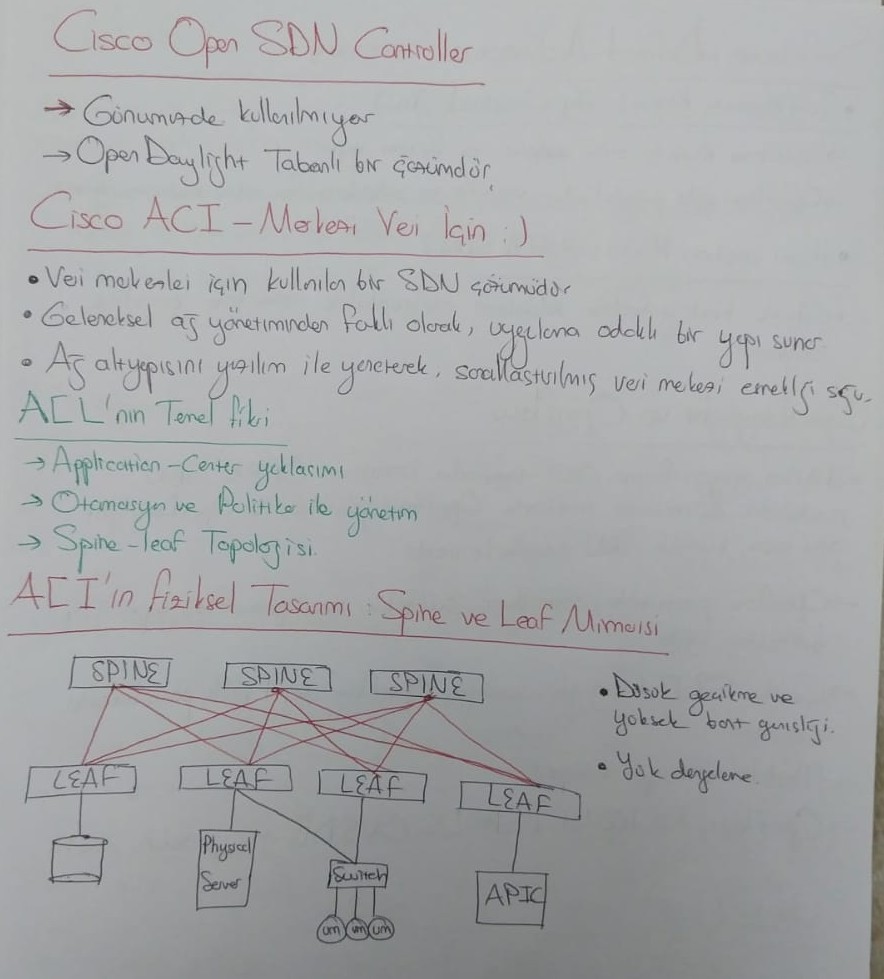 Cisco Open SDN Controller
→ Günümüzde kullanılmıyor
→ OpenDaylight Tabanlı bir çözümdür.
Cisco ACI - Merkezi Veri İçin :)
• Veri merkezleri için kullanılan bir SDN çözümüdür
• Geleneksel ağ yönetiminden farklı olarak, uygulama odaklı bir yapı sunar.
• Ağ altyapısını yazılım ile yöneterek, sanallaştırılmış veri merkezi esnekliği sağlar.
ACI'nın Temel fikri
→ Application-Center yaklaşımı
→ Otomasyon ve Politika ile yönetim
→ Spine-leaf Topolojisi.
ACI'ın fiziksel Tasarımı : Spine ve Leaf Mimarisi
SPINE SPINE SPINE
• Düşük gecikme ve
yüksek bant genişliği.
• Yük dengeleme.
LEAF LEAF LEAF LEAF
Physical
Server
Switch
APIC
vm vm vm